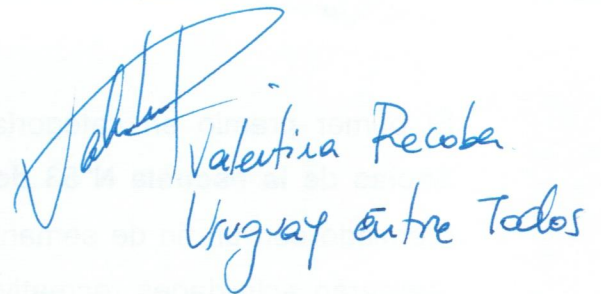 Valentina Recoba
Uruguay Entre Todos